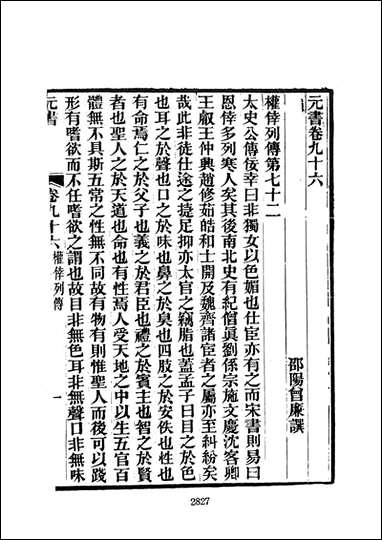 元書卷九十六
邵陽曾廉譔
權倖列傳第七十二
太史公傳佞幸曰非獨女以色媚也仕宦亦有之而宋書則易曰
恩倖多列寒人矣其後南北史有紀僧眞劉係宗施文慶沈客卿
王叡王仲興趙修茹皓和士開及魏齊諸宦者之屬亦至糾紛矣
哉此非徒仕途之捷足抑亦太官之竊脂也蓋孟子曰目之於色
也耳之於聲也口之於味也鼻之於臭也四肢之於安佚也性也
有命焉仁之於父子也義之於君臣也禮之於賓主也智之於賢
者也聖人之於天道也命也有性焉人受天地之中以生五官百
體無不具斯五常之性無不同故有物有則惟聖人而後可以踐
形有嗜欲而不任嗜欲之謂也故目非無色耳非無聲口非無味
元書
卷九十六權倖列傳
一
2827